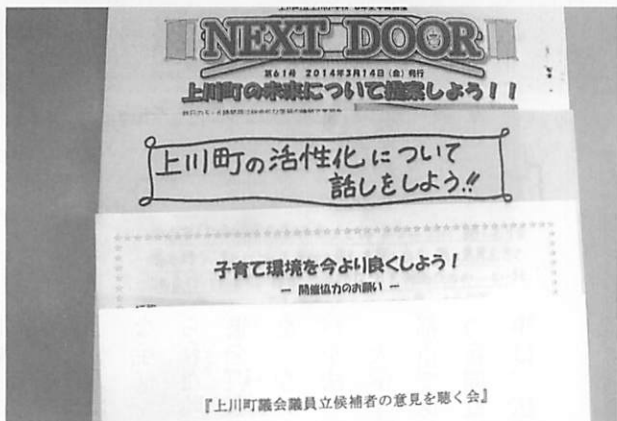 NEXT DOOR
第61号 2014年3月14日（金）発行
上川町の未来について提案しよう！！
上川町の活性化について
話しをしよう!!
子育て環境を今より良くしよう！
― 開催協力のお願い ―
『上川町議会議員立候補者の意見を聴く会』